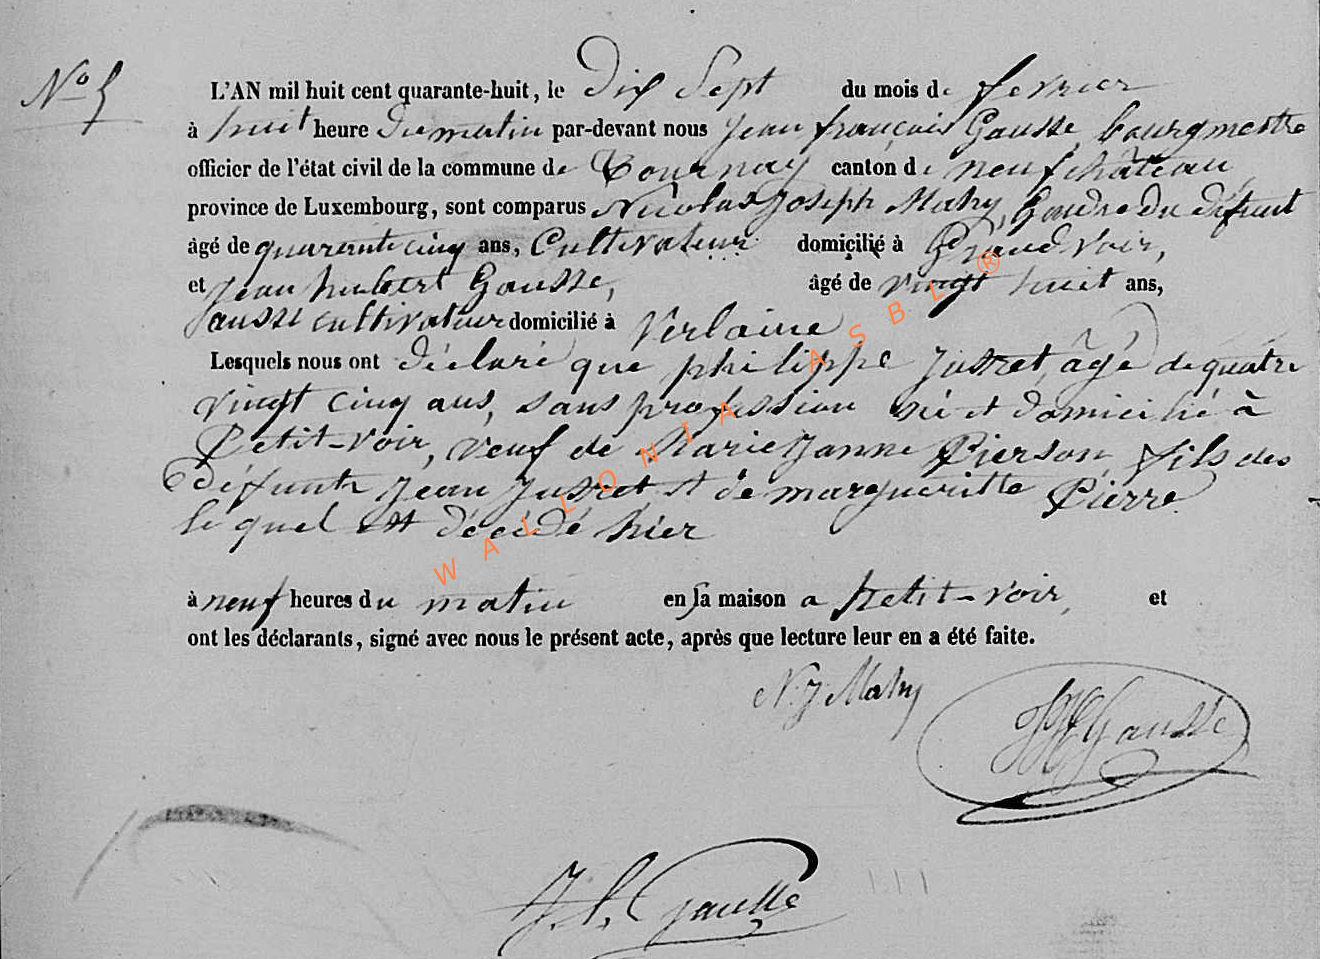 N° 5
L'AN mil huit cent quarante-huit, le Dix Sept du mois de fevrier
à huit heure Du matin par-devant nous Jean françois Gausse, bourgmestre
officier de l'état civil de la commune de Tournay canton de neufchâteau,
province de Luxembourg, sont comparus Nicolas Joseph Mahy, Gendre du défunt
âgé de quarante cinq ans, Cultivateur domicilié à Grand voir,
et Jean hubert Gousse, âgé de vingt huit ans,
aussi cultivateur domicilié à Verlaine
Lesquels nous ont déclaré que philippe Jusret, âgé de quatre
vingt cinq ans, sans profession né et domicilié à
Petit-voir, veuf de Marie Janne Pierson, fils des
défunts Jean Jusret et de margueritte Pierre
le quel est décédé hier
à neuf heures du matin en sa maison a petit-voir, et
ont les déclarants, signé avec nous le présent acte, après que lecture leur en a été faite.
N. J. Mahy
JH Gausse
J. f. Gausse
WALLONIA ASBL ®